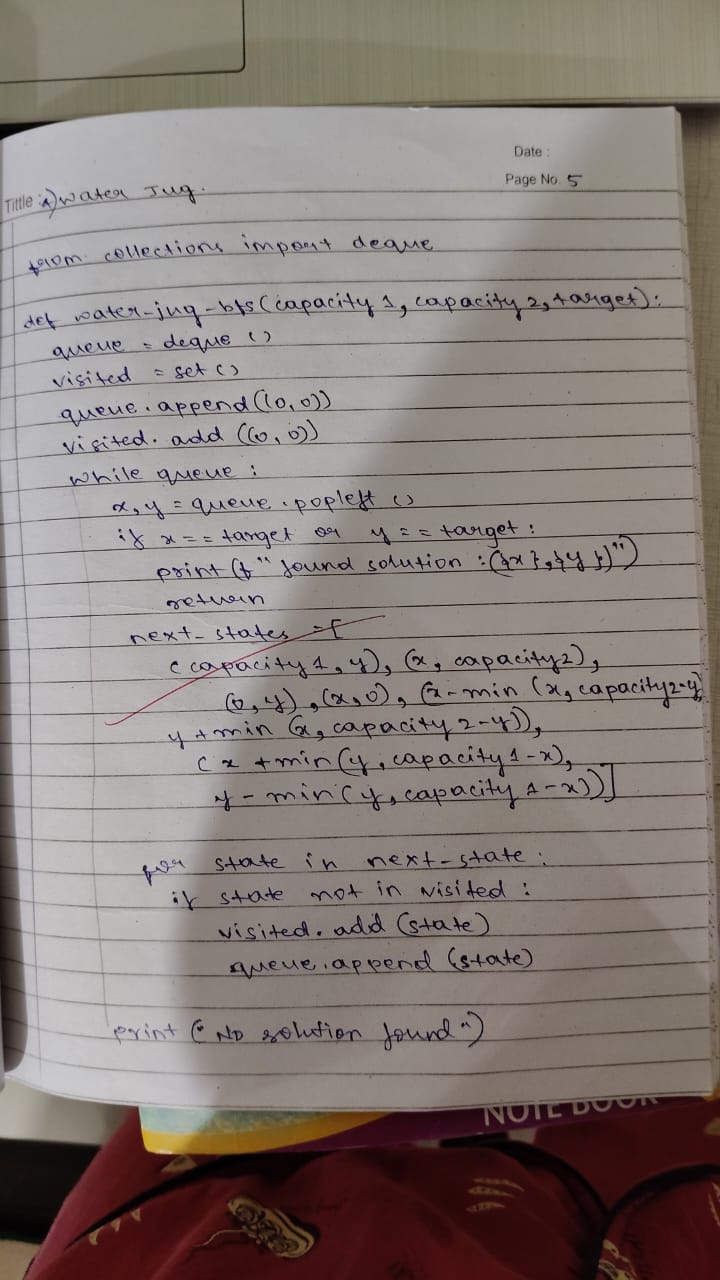 Date :
Page No. 5
Tittle : A) Water Jug.
from collections import deque
def water-jug-bfs (capacity 1, capacity 2, target):
queue = deque ()
visited = set ()
queue.append((0,0))
visited.add ((0,0))
while queue :
x, y = queue.popleft ()
if x == target or y == target :
print (f" found solution : ({x},{y})")
return
next-states = [
(capacity 1, y), (x, capacity2),
(0, y), (x,0), (x-min (x, capacity2-y)
y + min (x, capacity 2-y)),
(x + min (y, capacity 1-x),
y - min (y, capacity 1-x))]
for state in next-state :
if state not in visited :
visited.add (state)
queue.append (state)
print ("No solution found")
NOTE BOOK